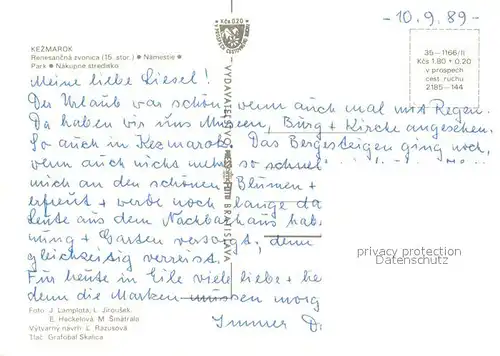 - 10.9.89 -
Kčs 0.20
KEŽMAROK
Renesančná zvonica (15. stor.) ● Námestie ●
Park ● Nákupné stredisko
35-1166/II
Kčs 1.80 + 0.20
v prospech
cest. ruchu
2185-144
VYDAVATEĽSTVO BRATISLAVA
Meine liebe Liesel!
Der Urlaub war schön, wenn auch mal mit Regen.
Da haben wir uns Museen, Burg + Kirche angesehen.
So auch in Kezmarok. Das Bergesteigen ging noch,
wenn auch nicht mehr so schnell
mich an den schönen Blumen +
erfreut + werde noch lange da
Leute aus dem Nachbarhaus hab
nung + Garten versorgt, denn
gleichzeitig verreist.
Für heute in Eile viele liebe + he
denn die Marken müssen morg
Immer D
privacy protection
Datenschutz
Foto: J. Lamplota, L. Jiroušek,
E. Heckelová, M. Šinátrale
Výtvarný návrh: Ľ. Rázusová
Tlač: Grafobal Skalica